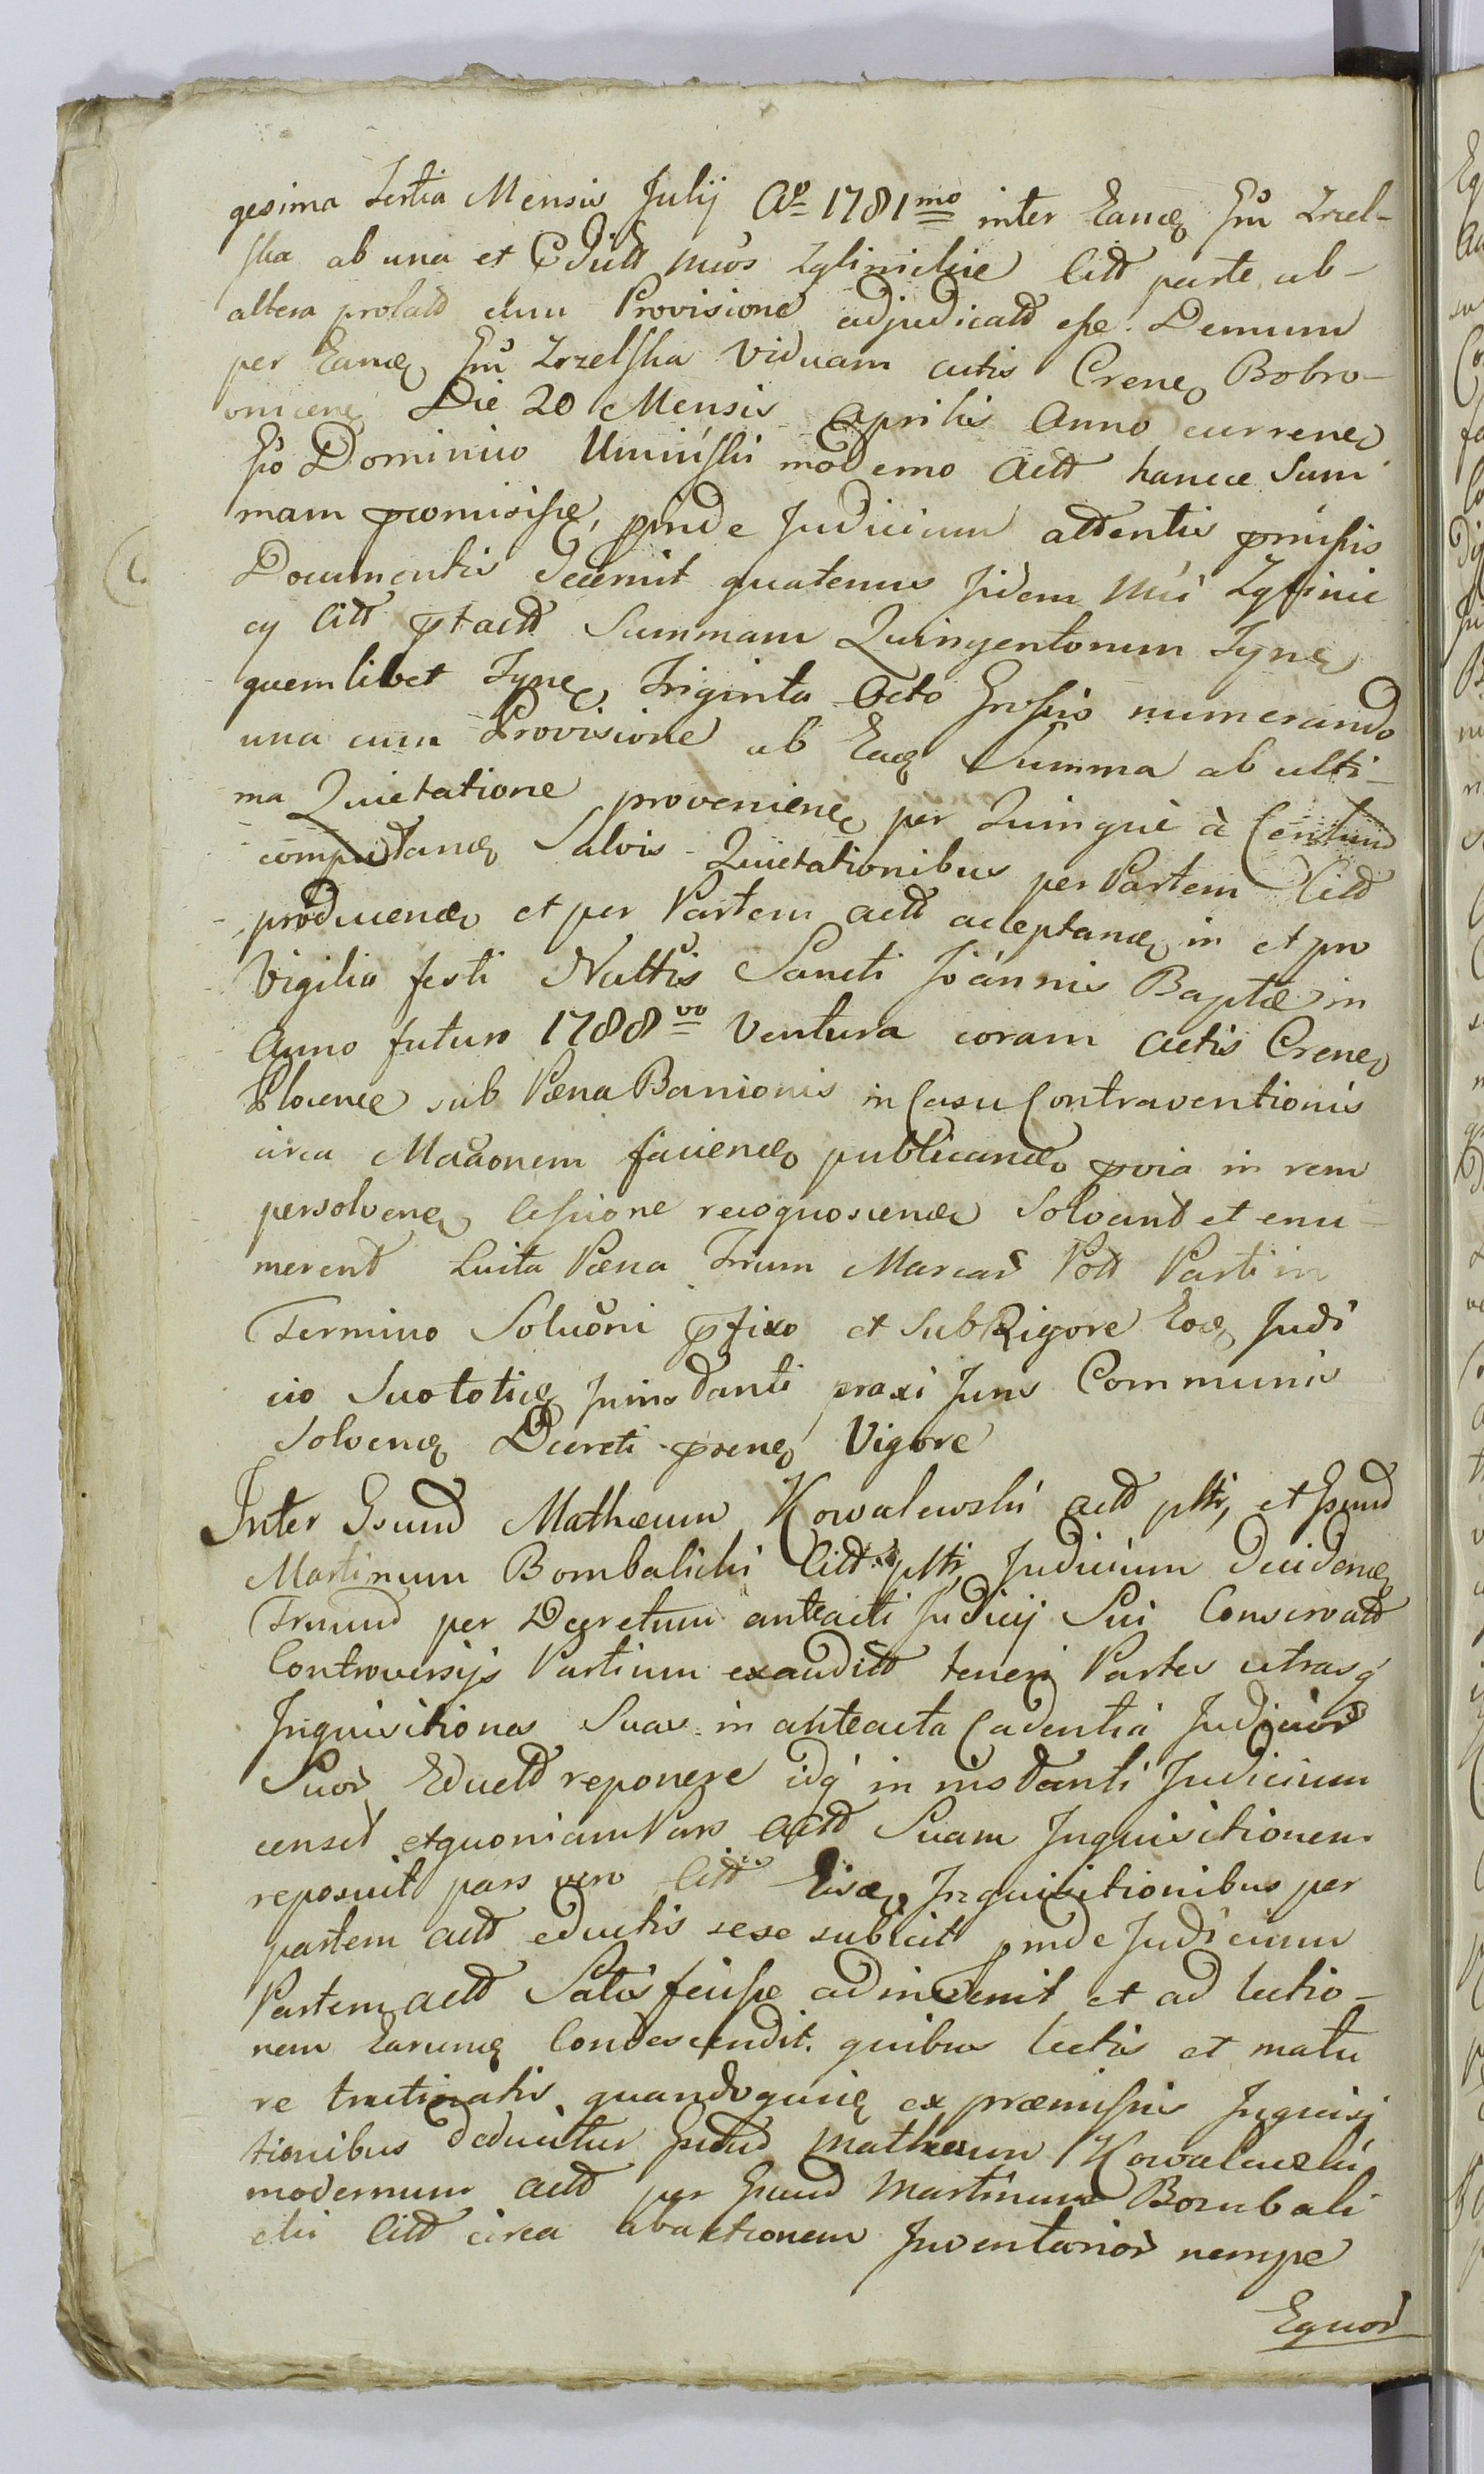 gesima tertia Mensis Julij Ao 1781mo inter Eandę Gm Zrzel-
ska ab una et Msos Zglinickie Citt parte ab-
altera prolatt cum Provisione adjudicatt esse. Demum
per Eandę Gm Zrzelska Viduam actis Crenę Bobro-
onicenę Die 20 Mensis Aprilis Anno currenę
Gso Dominico Uminski moderno Actt hancce Sum
mam promisisse, pinde Judicium attentis pmissis
Documentis decernit quatenus jidem Msi Zglinic
cy Citt ptactt Summam Quingentorum Tynę
quemlibet Tynę Triginta Octo Grossis numerando
una cum Provisione ab Eadę Summa ab ulti-
ma Quietatione provenienę per Quinque à Centum
computandę Salvis Quietationibus per Partem Citt
producendę et per Partem actt acceptandę in et pro
Vigilia festi Nattis Sancti Joannis Baptæ in
Anno futuro 1788vo Ventura coram Actis Crenę
Plocenę sub Pæna Banionis in Casu Contraventionis
circa Maaonem faciendę publicandę pvia in rem
persolvenę Cessione recognoscendę Solvant et enu-
merent Luita Pæna Trium Marcar Pott Parti in
Termino Soluõni pfixo et sub Rigore Eodę Judi
cio Suo totieę juris danti praxi Juris Communis
Solvendę Decreti psenę Vigore
Inter Gsum Mathæum Kowalewski actt pltr, et Gsum
Martinum Bombalicki Citt pltr, Judicium decidendę
Trnum per Decretum anteacti Judicij Sui Conservatt
Controversijs Partium exauditt teneri Partes utrasq
Inquisitiones Suas in anteacta Cadentia Judicior
Suor Eductt reponere idq in instanti Judicium
censet et quoniam Pars actt Suam Inquisitionem
reposuit pars vero Citt Eisdę Inquisitionibus per
partem actt eductis sese subicit pinde Judicium
Partem actt Satis fecisse adinvenit et ad lectio-
nem Earundę Condescendit. quibus lectis et matu
re trutinatis, quandoquidę ex præmissis Inquisi
tionibus deducitur Gsum Mathæum Kowalewski
modernum actt per Gsum Martinum Bombali
cki Citt circa abactionem Inventarior nempe
Equor